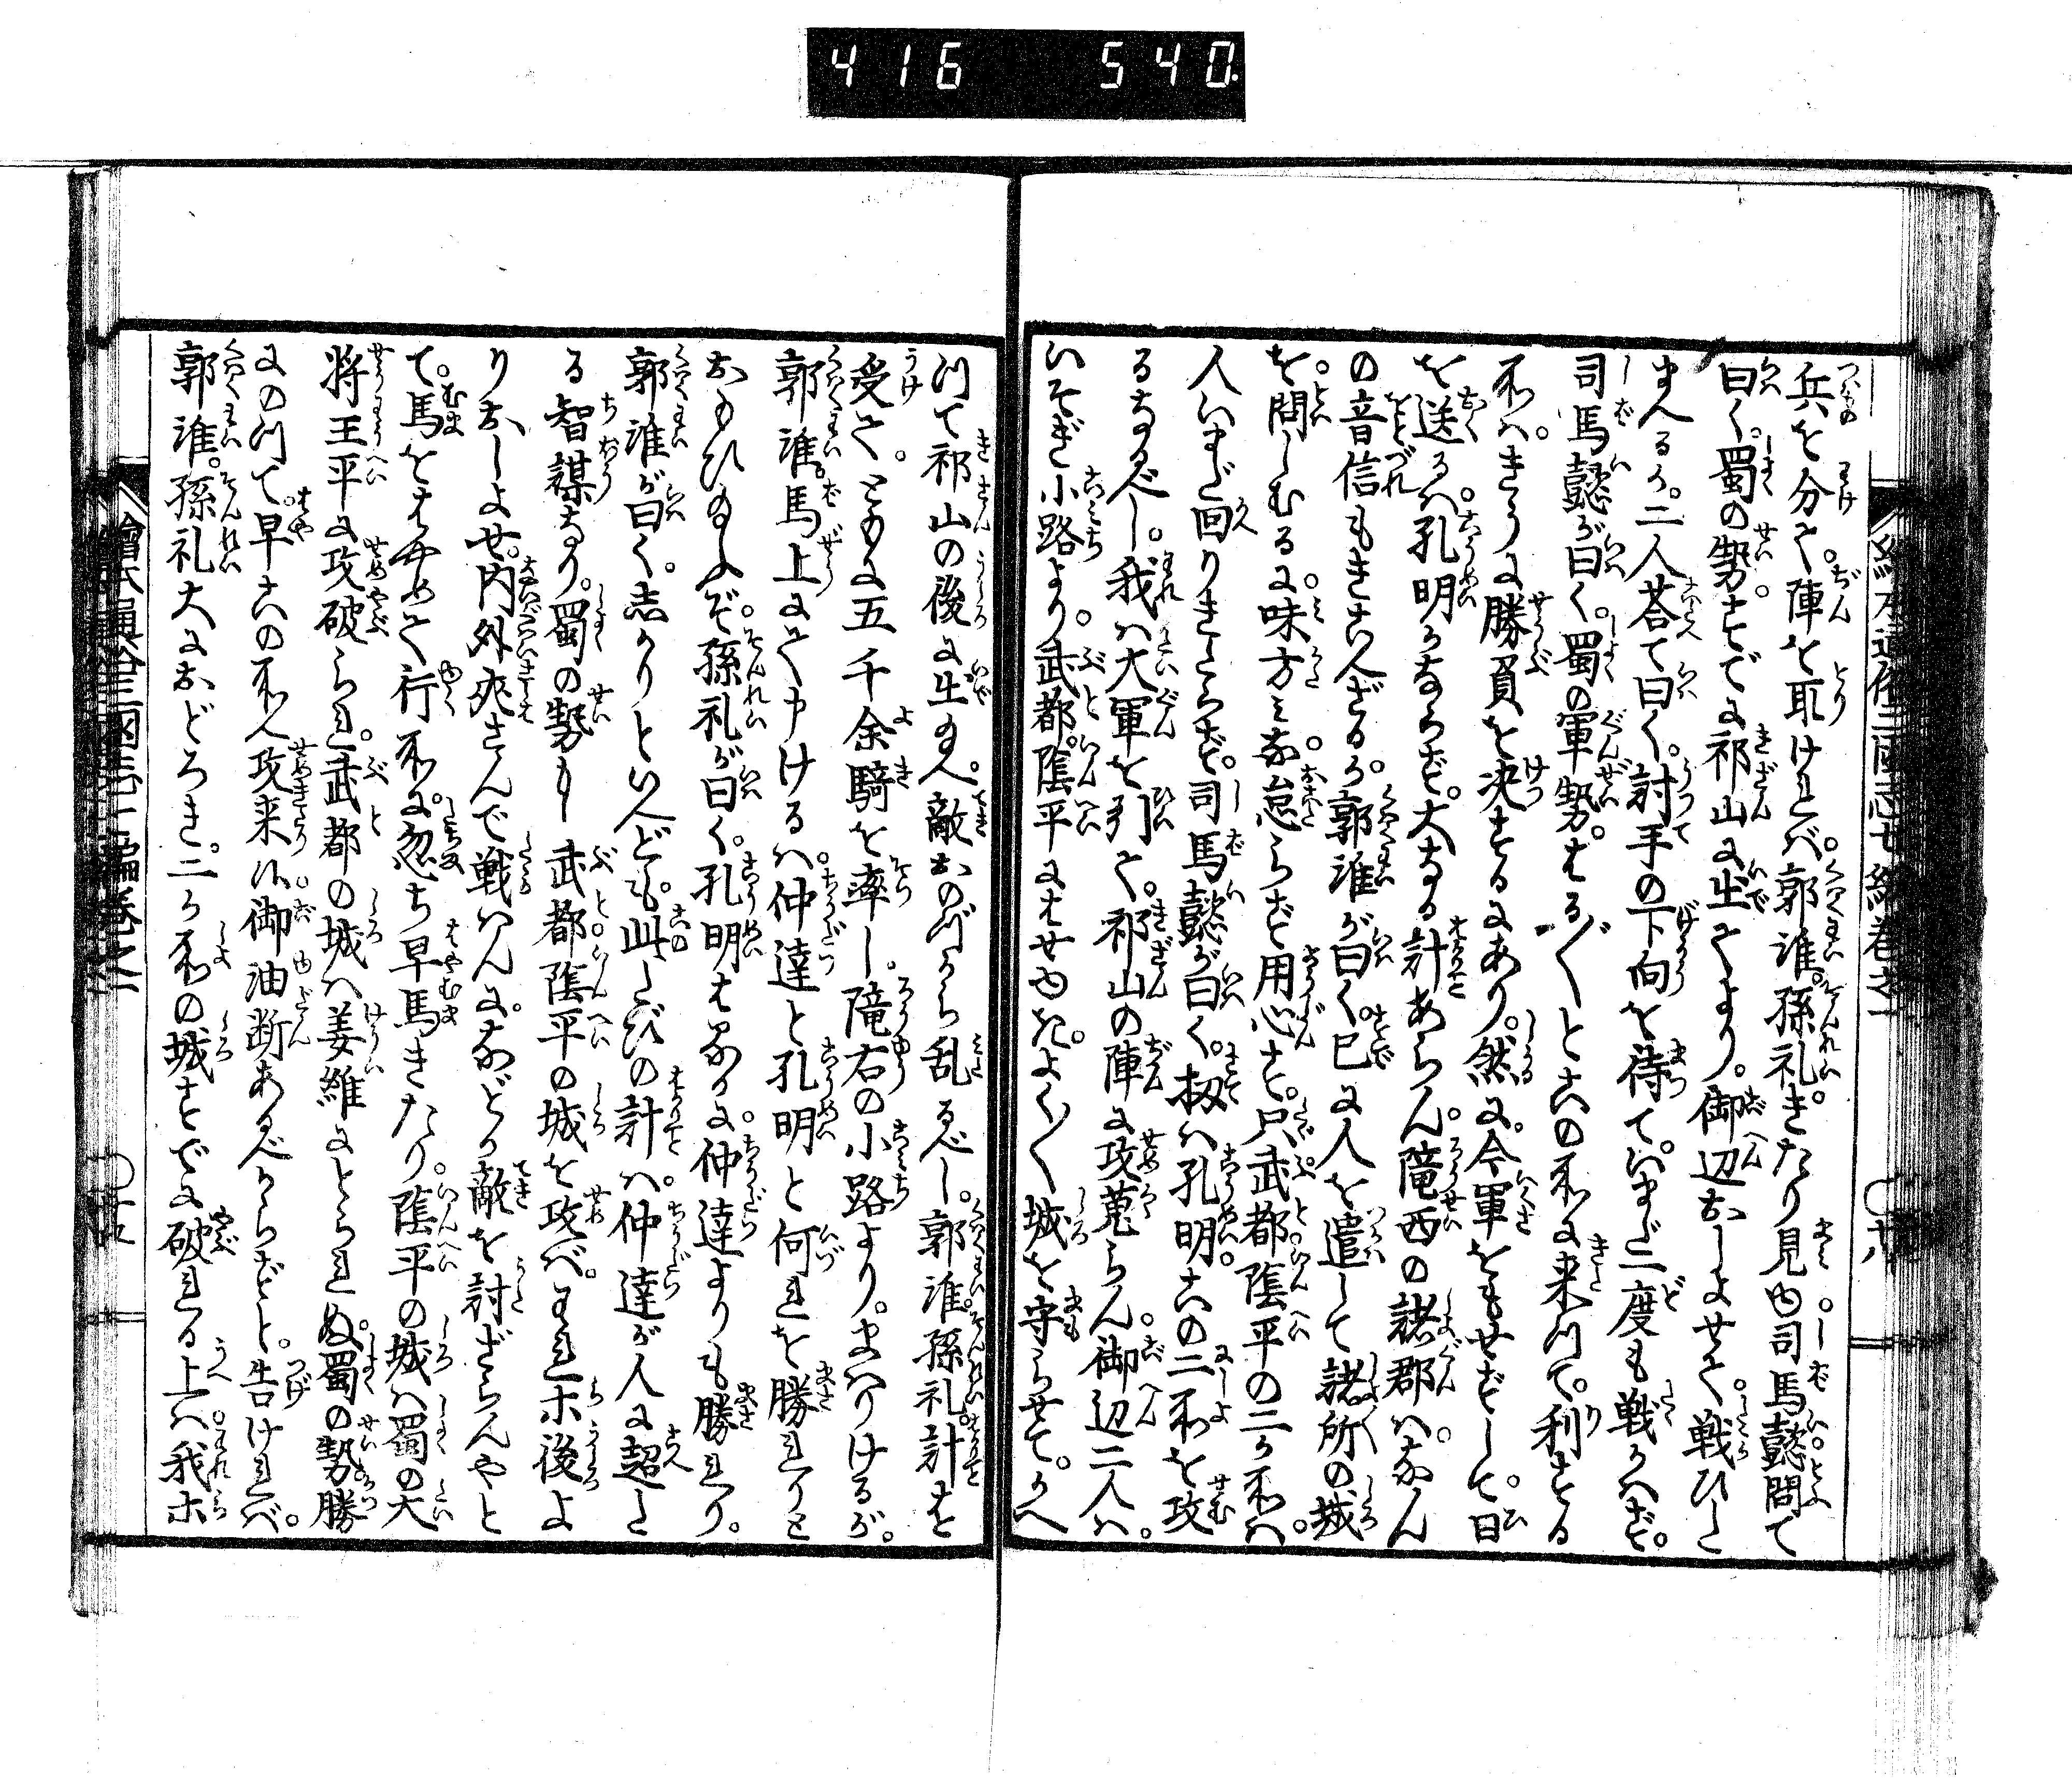 416 540
兵を分て。陣を取けれバ。郭淮。孫礼。きたり見ゆ。司馬懿。問て
曰く。蜀の勢。すでに祁山に出てより。御辺おしよせて。戦ひし
事ハ
まへるか。二人荅て曰く。討手の下向を待て。いまだ一度も戦かハず。
司馬懿が曰く。蜀の軍勢。はる〴〵と此の所に来つて。利とする
所ハ。きうに勝負を決するにあり。然に。今軍をもせずして。日
を送るハ。孔明かならず。大なる計あらん。隴西の諸郡ハ。なん
の音信もきこえざるか。郭淮が曰く。已に人を遣して。諸所の城
を。問しむるに。味方みな。怠らず用心す。只武都。陰平の二ケ所ハ。
人いまだ回りきたらず。司馬懿が曰く。扨ハ孔明。此の二所を攻
るなるべし。我ハ大軍を引て。祁山の陣に攻蒐らん。御辺二人ハ。
いそぎ小路より。武都。陰平にはせゆき。よく〳〵城を守らせて。かへ
つて祁山の後に出給へ。敵おのづから乱るべし。郭淮。孫礼。計を
受て。ともに五千余騎を率し。隴右の小路より。まハりけるが。
郭淮。馬上にて申けるハ。仲達と孔明と何れを勝れりと
おもひ給ふぞ。孫礼が曰く。孔明はるかに。仲達よりも勝れり。
郭淮が曰く。志かりといへども。此たびの計ハ。仲達が人に超た
る智謀なり。蜀の勢もし武都。陰平の城を攻バ。われホ後よ
りおしよせ。内外夾さんで戦ハんに。などか敵を討ざらんやと
て。馬をはやめて行所に。忽ち早馬きたり。陰平の城ハ蜀の大
将王平に攻破られ。武都の城ハ姜維にとられぬ。蜀の勢勝
にのつて。早此の所へ攻来候。御油断あるべからずと。告けれバ。
郭淮。孫礼大におどろき。二ケ所の城すでに破れる上ハ。我ホ